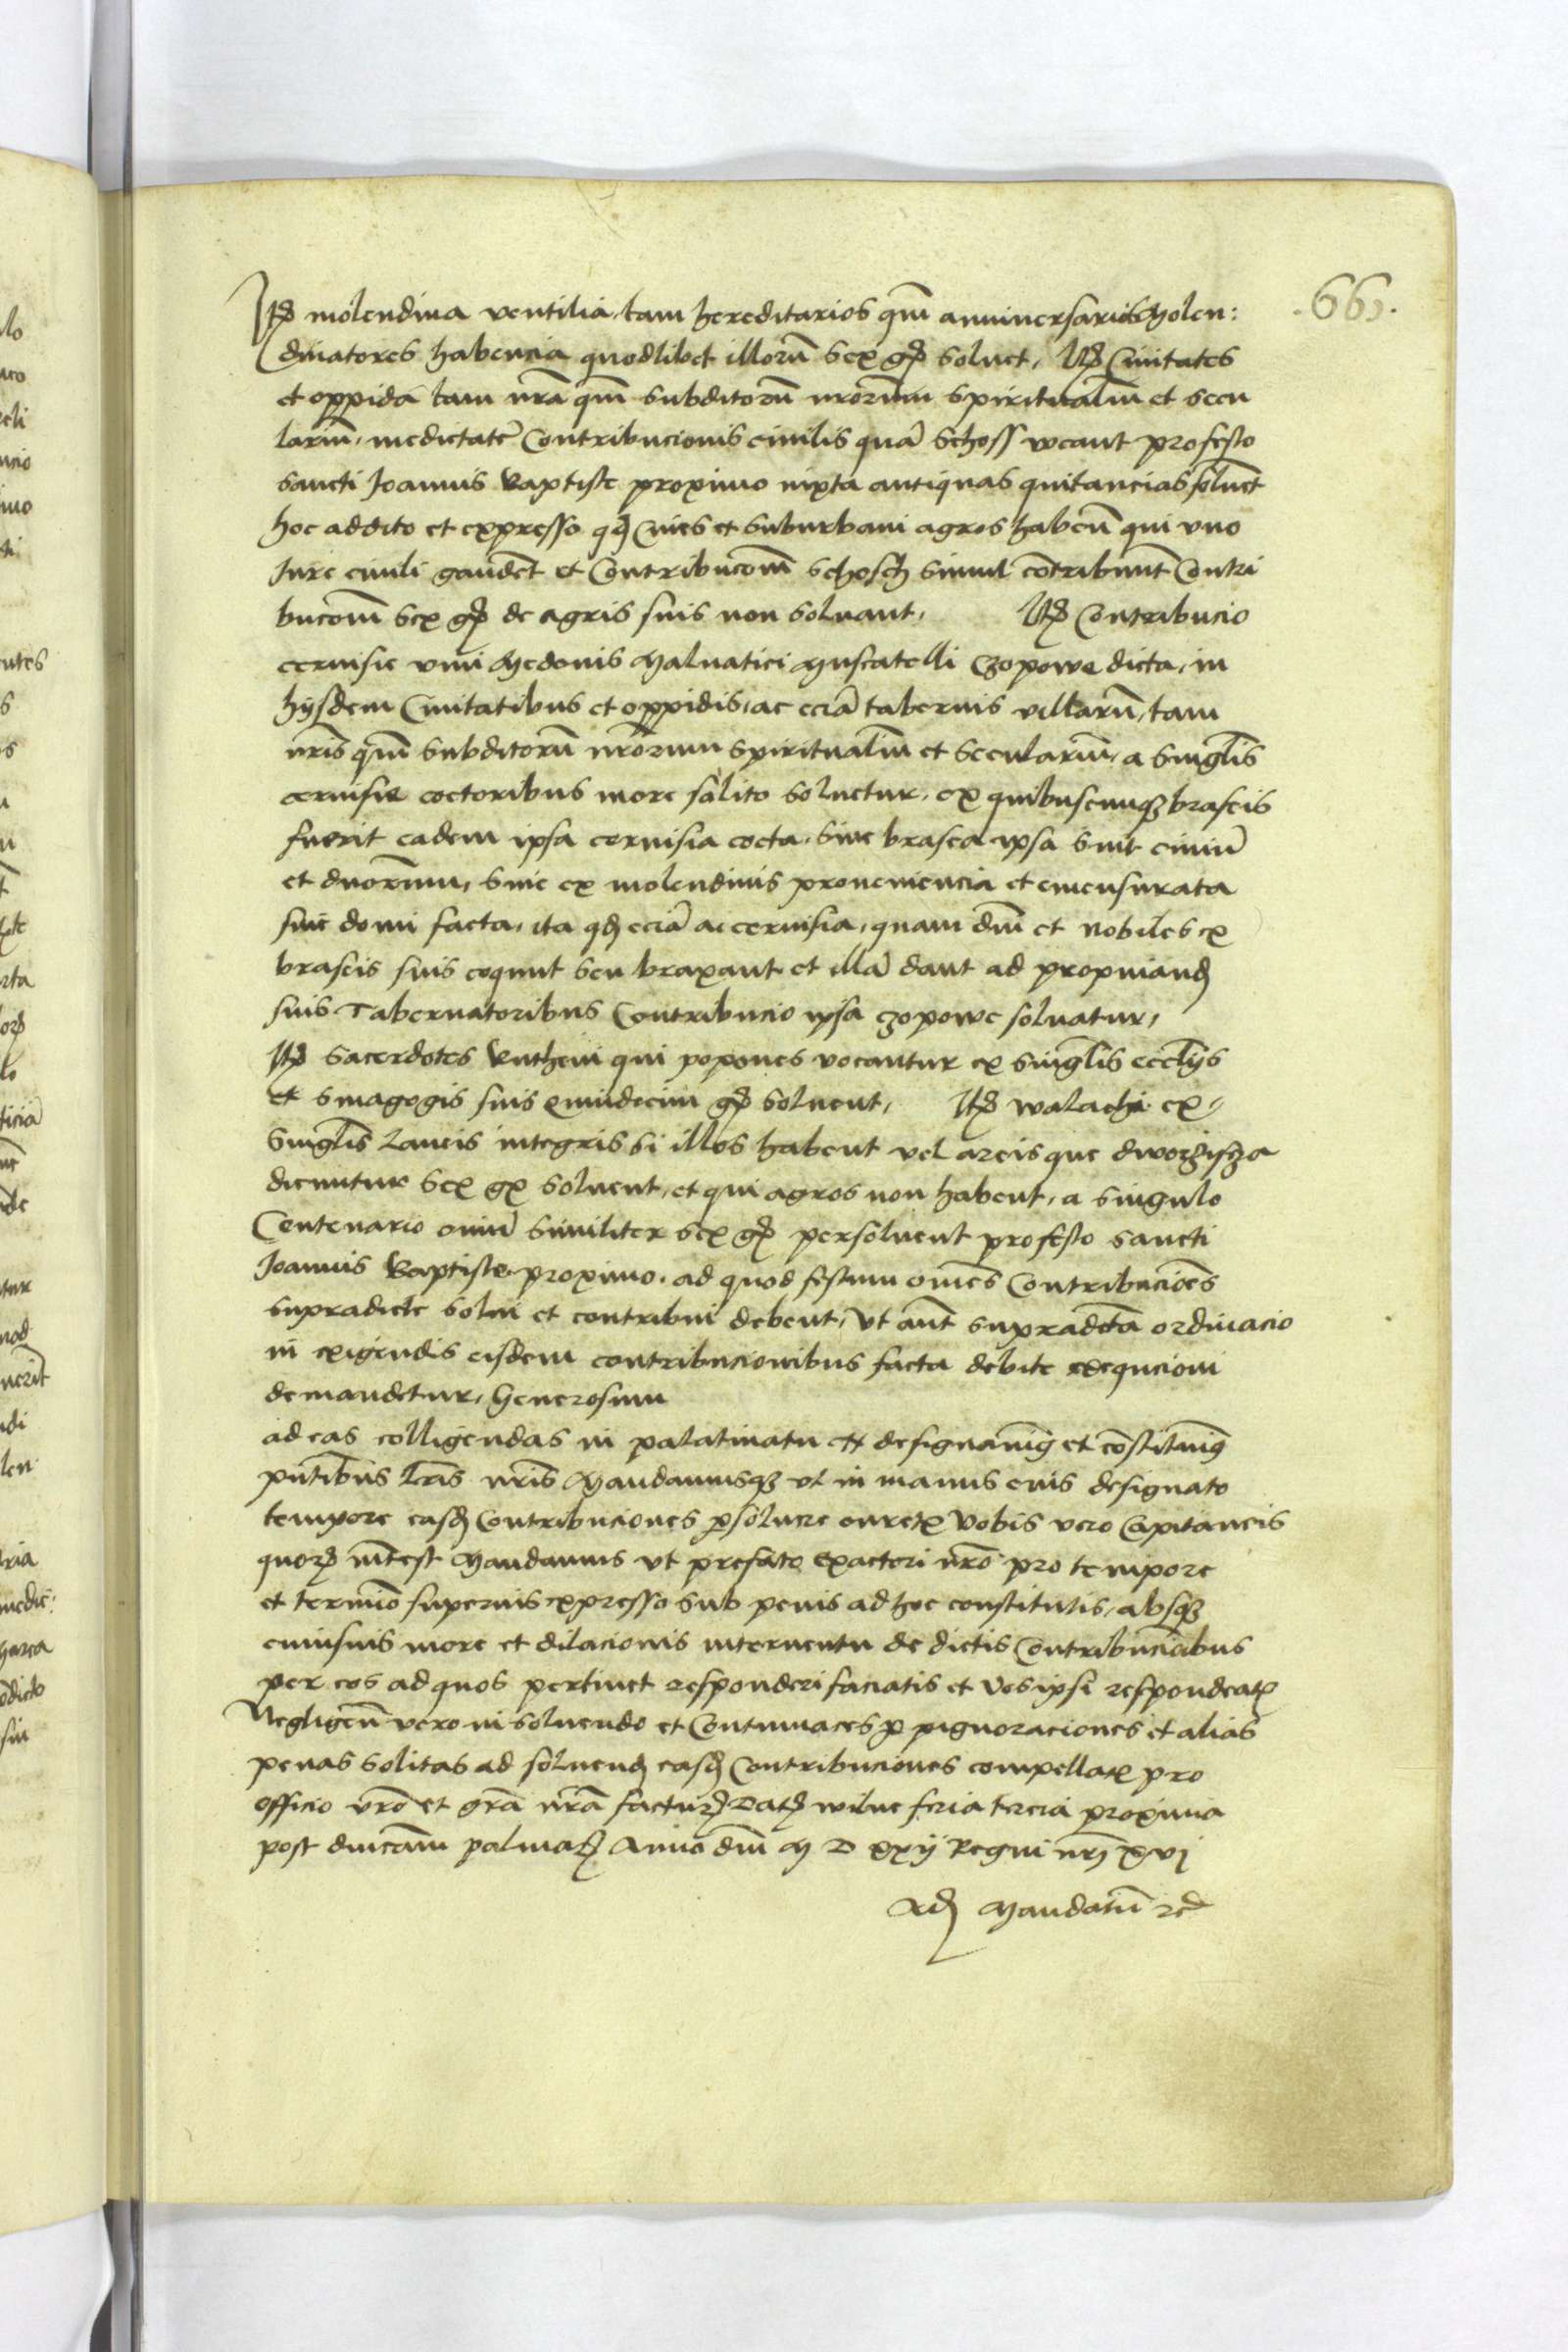 .661.
Itē molendina ventilia, tam hereditarios qm̄ anniversarios Molen:
dinatores habencia quodlibet illorū sex gr̄ soluet, Itē Civitates
et oppida tam nrā qm̄ subditorū nrōrum spiritualiū et secu
lariū, medietatē Contribucionis civilis quā Schoss vocant pro festo
sancti Joannis Baptiste proximo iuxta antiquas quitancias soluēt
hoc addito et expresso qđ Cives et suburbani agros habeñ qui uno
Jure civili gaudēt et Contribucōm Schosch simul cōtribuunt Contri
bucōm sex gr̄ de agris suis non soluant, Itē Contribucio
cervisie vini Medonis Malvatici Muscatelli Czopowe dicta, in
hijsdem Civitatibus et oppidis, ac eciā tabernis villarū, tam
nrīs qm̄ subditorū nrōrum spiritualiū et seculariū, a singlīs
cervisie coctoribus more solito soluetur, ex quibuscumqȝ braseis
fuerit eadem ipsa cervisia cocta, sive brasea ipsa sint civiū
et dnōrum, sive ex molendinis proveniencia et emensurata
sive domi facta, ita qđ eciā ac cervisia, quam dn̄i et Nobiles ex
braseis suis coquunt seu braxant et illā dant ad propinanđ
suis Tabernatoribus Contribucio ipsa czopowe soluatur,
Itē Sacerdotes Rutheni qui popones vocantur ex singlīs eccl̄ijs
et sinagogis suis quindecim gr̄ soluent, Itē Walachi ex
singlīs Laneis integris si illos habent vel areis que dworziszcza
dicuntur sex gr̄ soluent, et qui agros non habent, a singulo
Centenario oviū similiter sex gr̄ persoluent pro festo sancti
Joannis Baptiste proximo, ad quod festum omēs Contribuciones
supradicte solui et contribui debent, Ut aūt supradcta ordinacio
in exigendis eisdem contribucionibus facta debite exequcioni
demandetur, Generosum
ad eas colligendas in palatinatu etc designavimꝰ et cōstituimꝰ
pn̄tibus lrīs nrīs Mandamusqȝ ut in manus eius designato
tempore easđ Contribuciones p̱soluere curetꝭ Vobis vero Capitaneis
quorꝝ int̄est Mandamus ut prefato Exactori nrō pro tempore
et termīo superius expresso sub penis ad hoc constitutis, absqȝ
cuiusvis more et dilacionis interventu de dictis Contribucioībus
per eos ad quos pertinet responderi faciatis et Vos ipsi respondeatꝭ
Negligeñ vero in soluendo et Contumaces p̱ pignoraciones et alias
penas solitas ad soluenđ easđ Contribuciones compellatꝭ pro
officio vrō et grā nrā facturꝭ Datꝭ Wilne feria tercia proxima
post dnīcam palmarꝝ Anno dnī M D XXij Regni nrī xvi
Ađ Mandatū etc